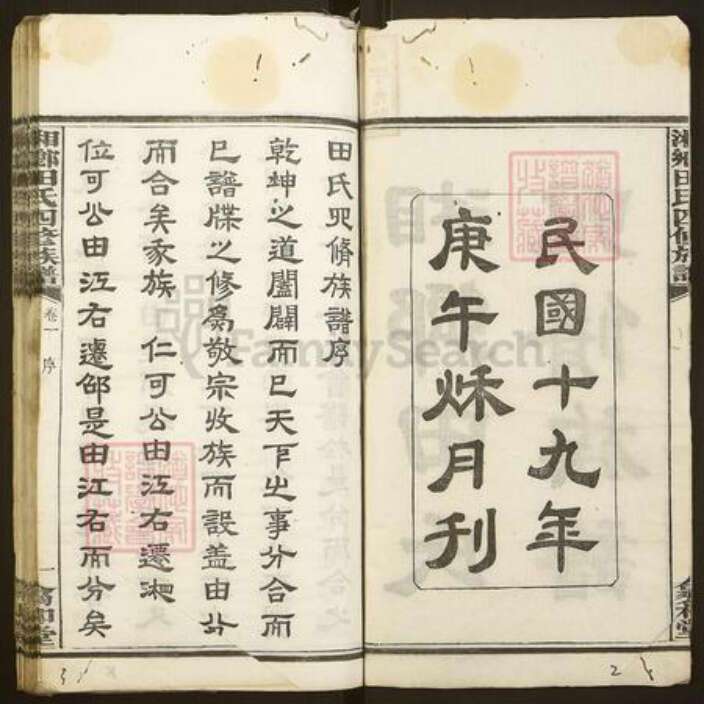 湘鄉田氏四修族譜
民國十九年
庚午秌月刊
2
田氏四脩族譜序
乾坤之道闔闢而已天下之事分合而
已譜牒之修爲敬宗收族而設盖由分
而合矣承族 仁可公由江右遷湘
位可公由江右遷邵是由江右而分矣
湘鄉田氏四修族譜
卷一
序
一
3
FamilySearch